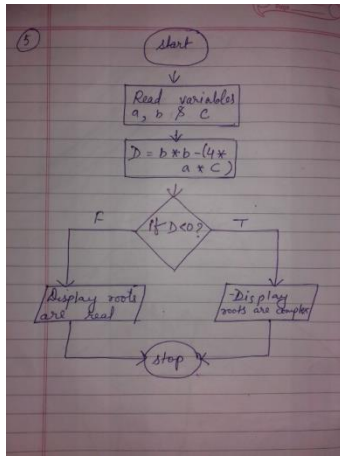 5
start
Read variables
a, b & c
D = b*b-(4*
a*c)
If D<0?
F
T
Display roots
are real
Display
roots are complex
stop